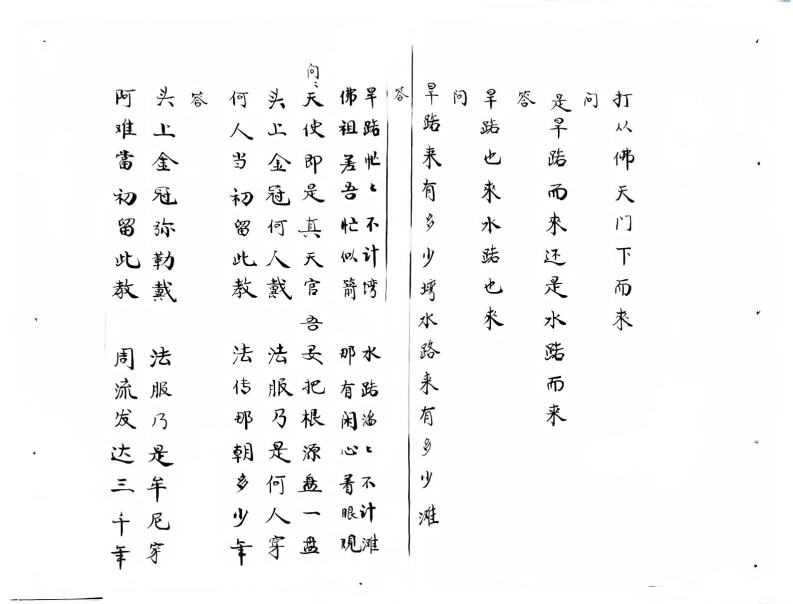 打从佛天门下而来
问
是旱路而來还是水路而来
答
旱路也來水路也來
问
旱路来有多少塆水路来有多少滩
答
旱路忙〻不计湾 水路滔〻不计滩
佛祖差吾忙似箭 那有闲心着眼观
问：天使即是真天官 吾要把根源盘一盘
头上金冠何人戴 法服乃是何人穿
何人当初留此教 法传那朝多少年
答
头上金冠弥勒戴 法服乃是牟尼穿
阿难當初留此教 周流发达三千年